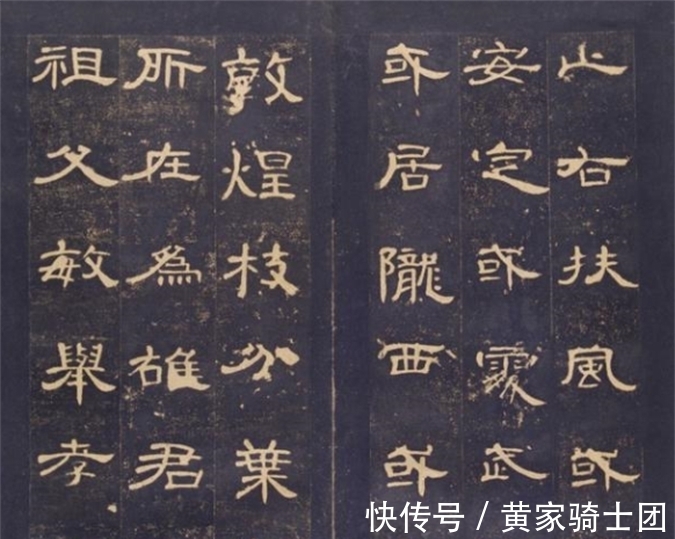 止右扶風或
安定或處武
或居隴西或
敦煌枝分葉
所在為雄君
祖父敏舉孝
快传号 / 黄家骑士团